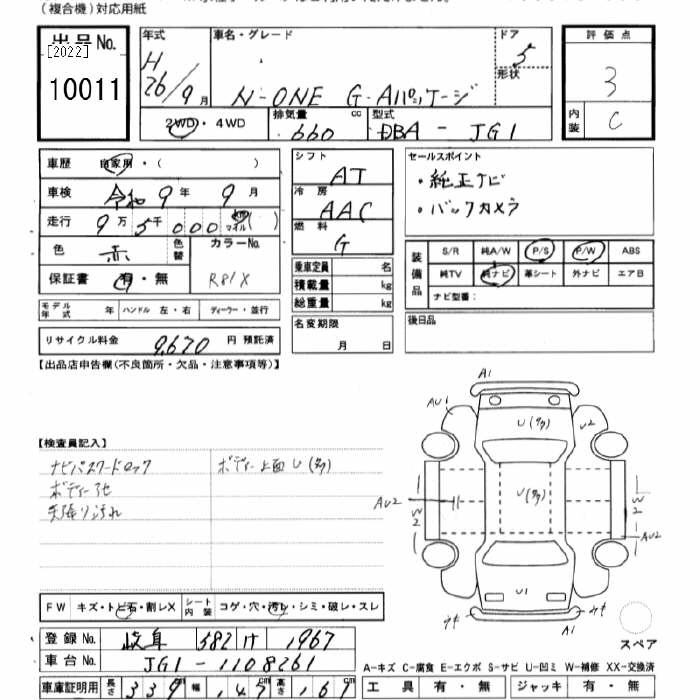 (複合機)対応用紙
出品No.
[2022]
10011
年式 H 26/9月
車名・グレード N-ONE G・Aパッケージ
ドア 5
形状
評価点 3
内装 C
2WD・4WD
排気量 660 cc
型式 DBA - JG1
車歴 自家用・( )
車検 令和9年9月
走行 9万5千000 km マイル ( )
色 赤 色替
カラーNo. R81X
保証書 有・無
モデル年式 年 ハンドル 左・右 ディーラー・並行
リサイクル料金 9,670 円 預託済
シフト AT
冷房 AAC
燃料 G
乗車定員 名
積載量 kg
総重量 kg
名変期限 月 日
セールスポイント
・純正ナビ
・バックカメラ
装備品
S/R 純A/W P/S P/W ABS
純TV 純ナビ 革シート 外ナビ エアB
ナビ型番:
後日品
【出品店申告欄(不良箇所・欠品・注意事項等)】
【検査員記入】
ナビパスワードロック
ボディー上面U(多)
A1
AU1
U(多)
U2
U(多)
AU2
W2
W2
AU2
U1
A1
スペア
FW キズ・トビ石・割レX
シート内装 コゲ・穴・汚レ・シミ・破レ・スレ
登録No. 岐阜 582 け 1967
車台No. JG1-1108261
車庫証明用 長さ 339 cm 幅 147 cm 高さ 161 cm
A-キズ C-腐食 E-エクボ S-サビ U-凹ミ W-補修 XX-交換済
工具 有・無 ジャッキ 有・無